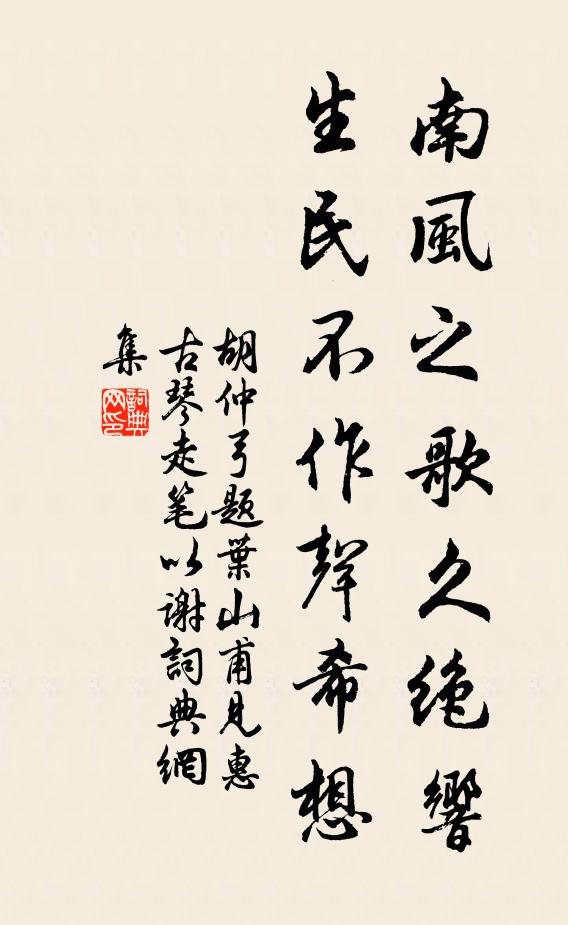 南風之歌久絶響
生民不作聲希想
胡仲弓题葉山甫見惠
古琴走笔以谢詞典網
集
詞典网印